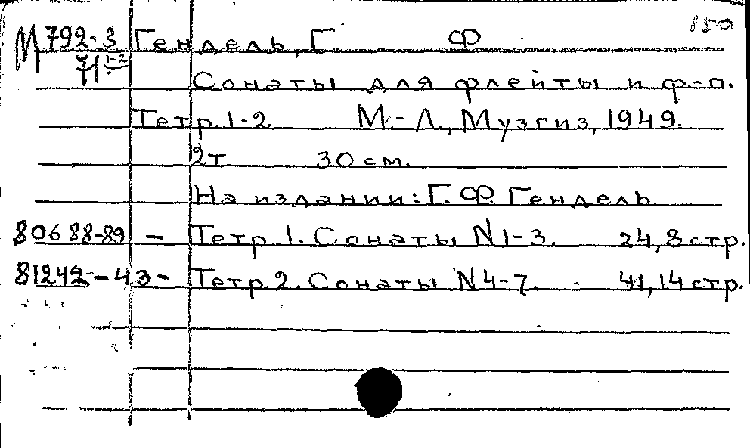 150
М 792-3 Гендель, Г. Ф
71 1-2
Сонаты для флейты и ф-п.
Тетр. 1-2. М.-Л., Музгиз, 1949.
2т 30 см.
На издании: Г. Ф. Гендель
80688-89 - Тетр. 1. Сонаты N1-3. 24, 8 стр.
81242-43- Тетр. 2. Сонаты N4-7. 41, 14 стр.